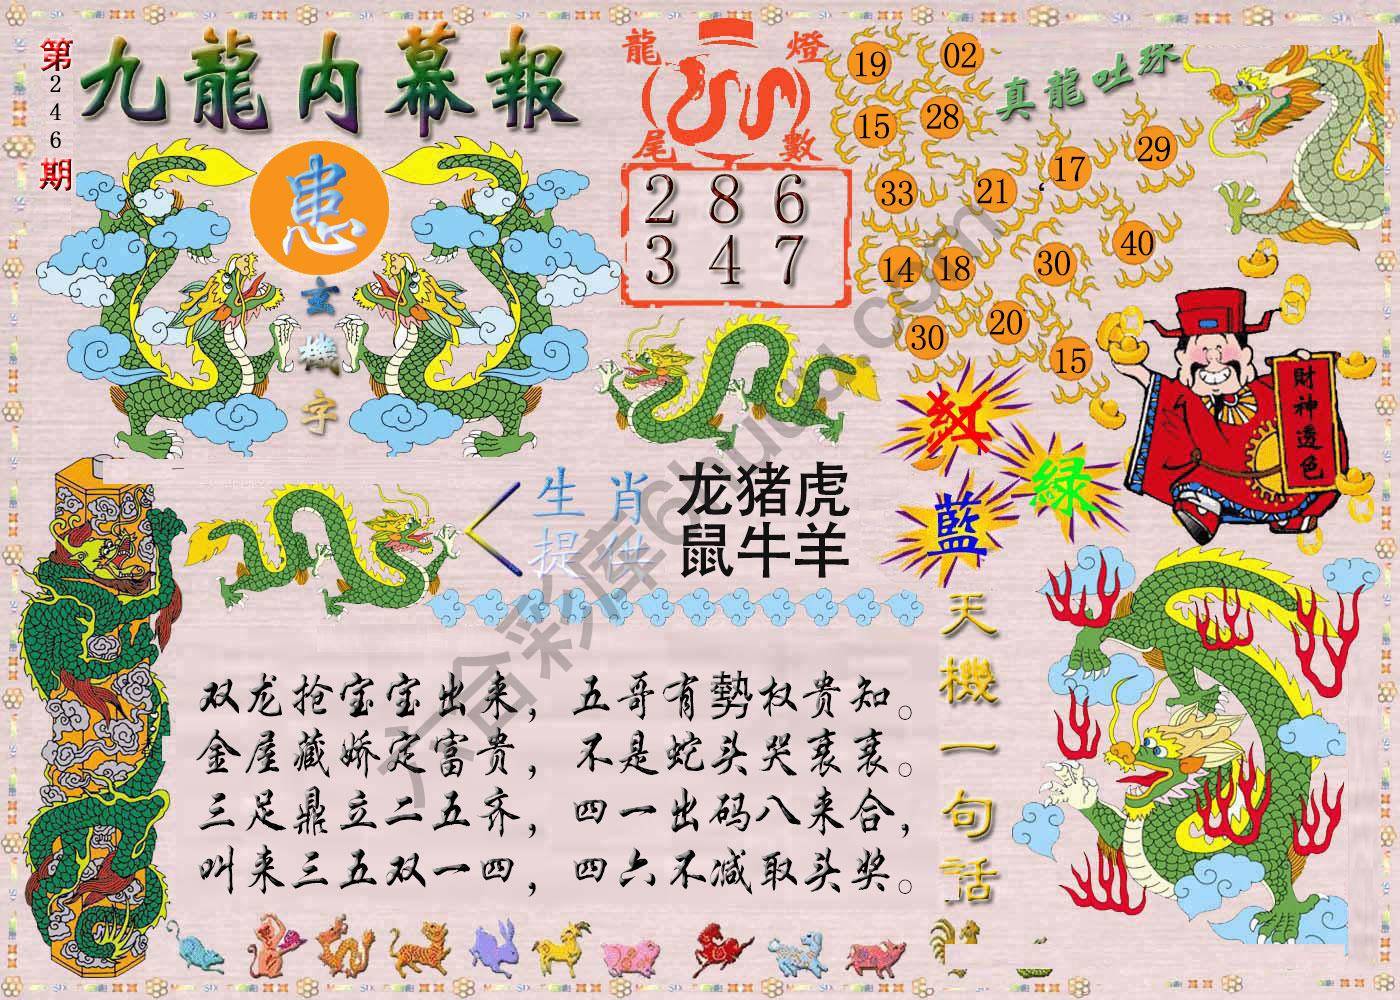 第246期
九龍内幕報
患
玄機字
龍燈尾數
2 8 6
3 4 7
真龍吐珠
19 02
15 28
33 21 17 29
14 18 30 40
30 20 15
財神透色
红
綠
藍
生肖提供
龙猪虎
鼠牛羊
天機一句话
双龙抢宝宝出来，五哥有勢权贵知。
金屋藏娇定富贵，不是蛇头哭衰衰。
三足鼎立二五齐，四一出码八来合，
叫来三五双一四，四六不减取头奖。